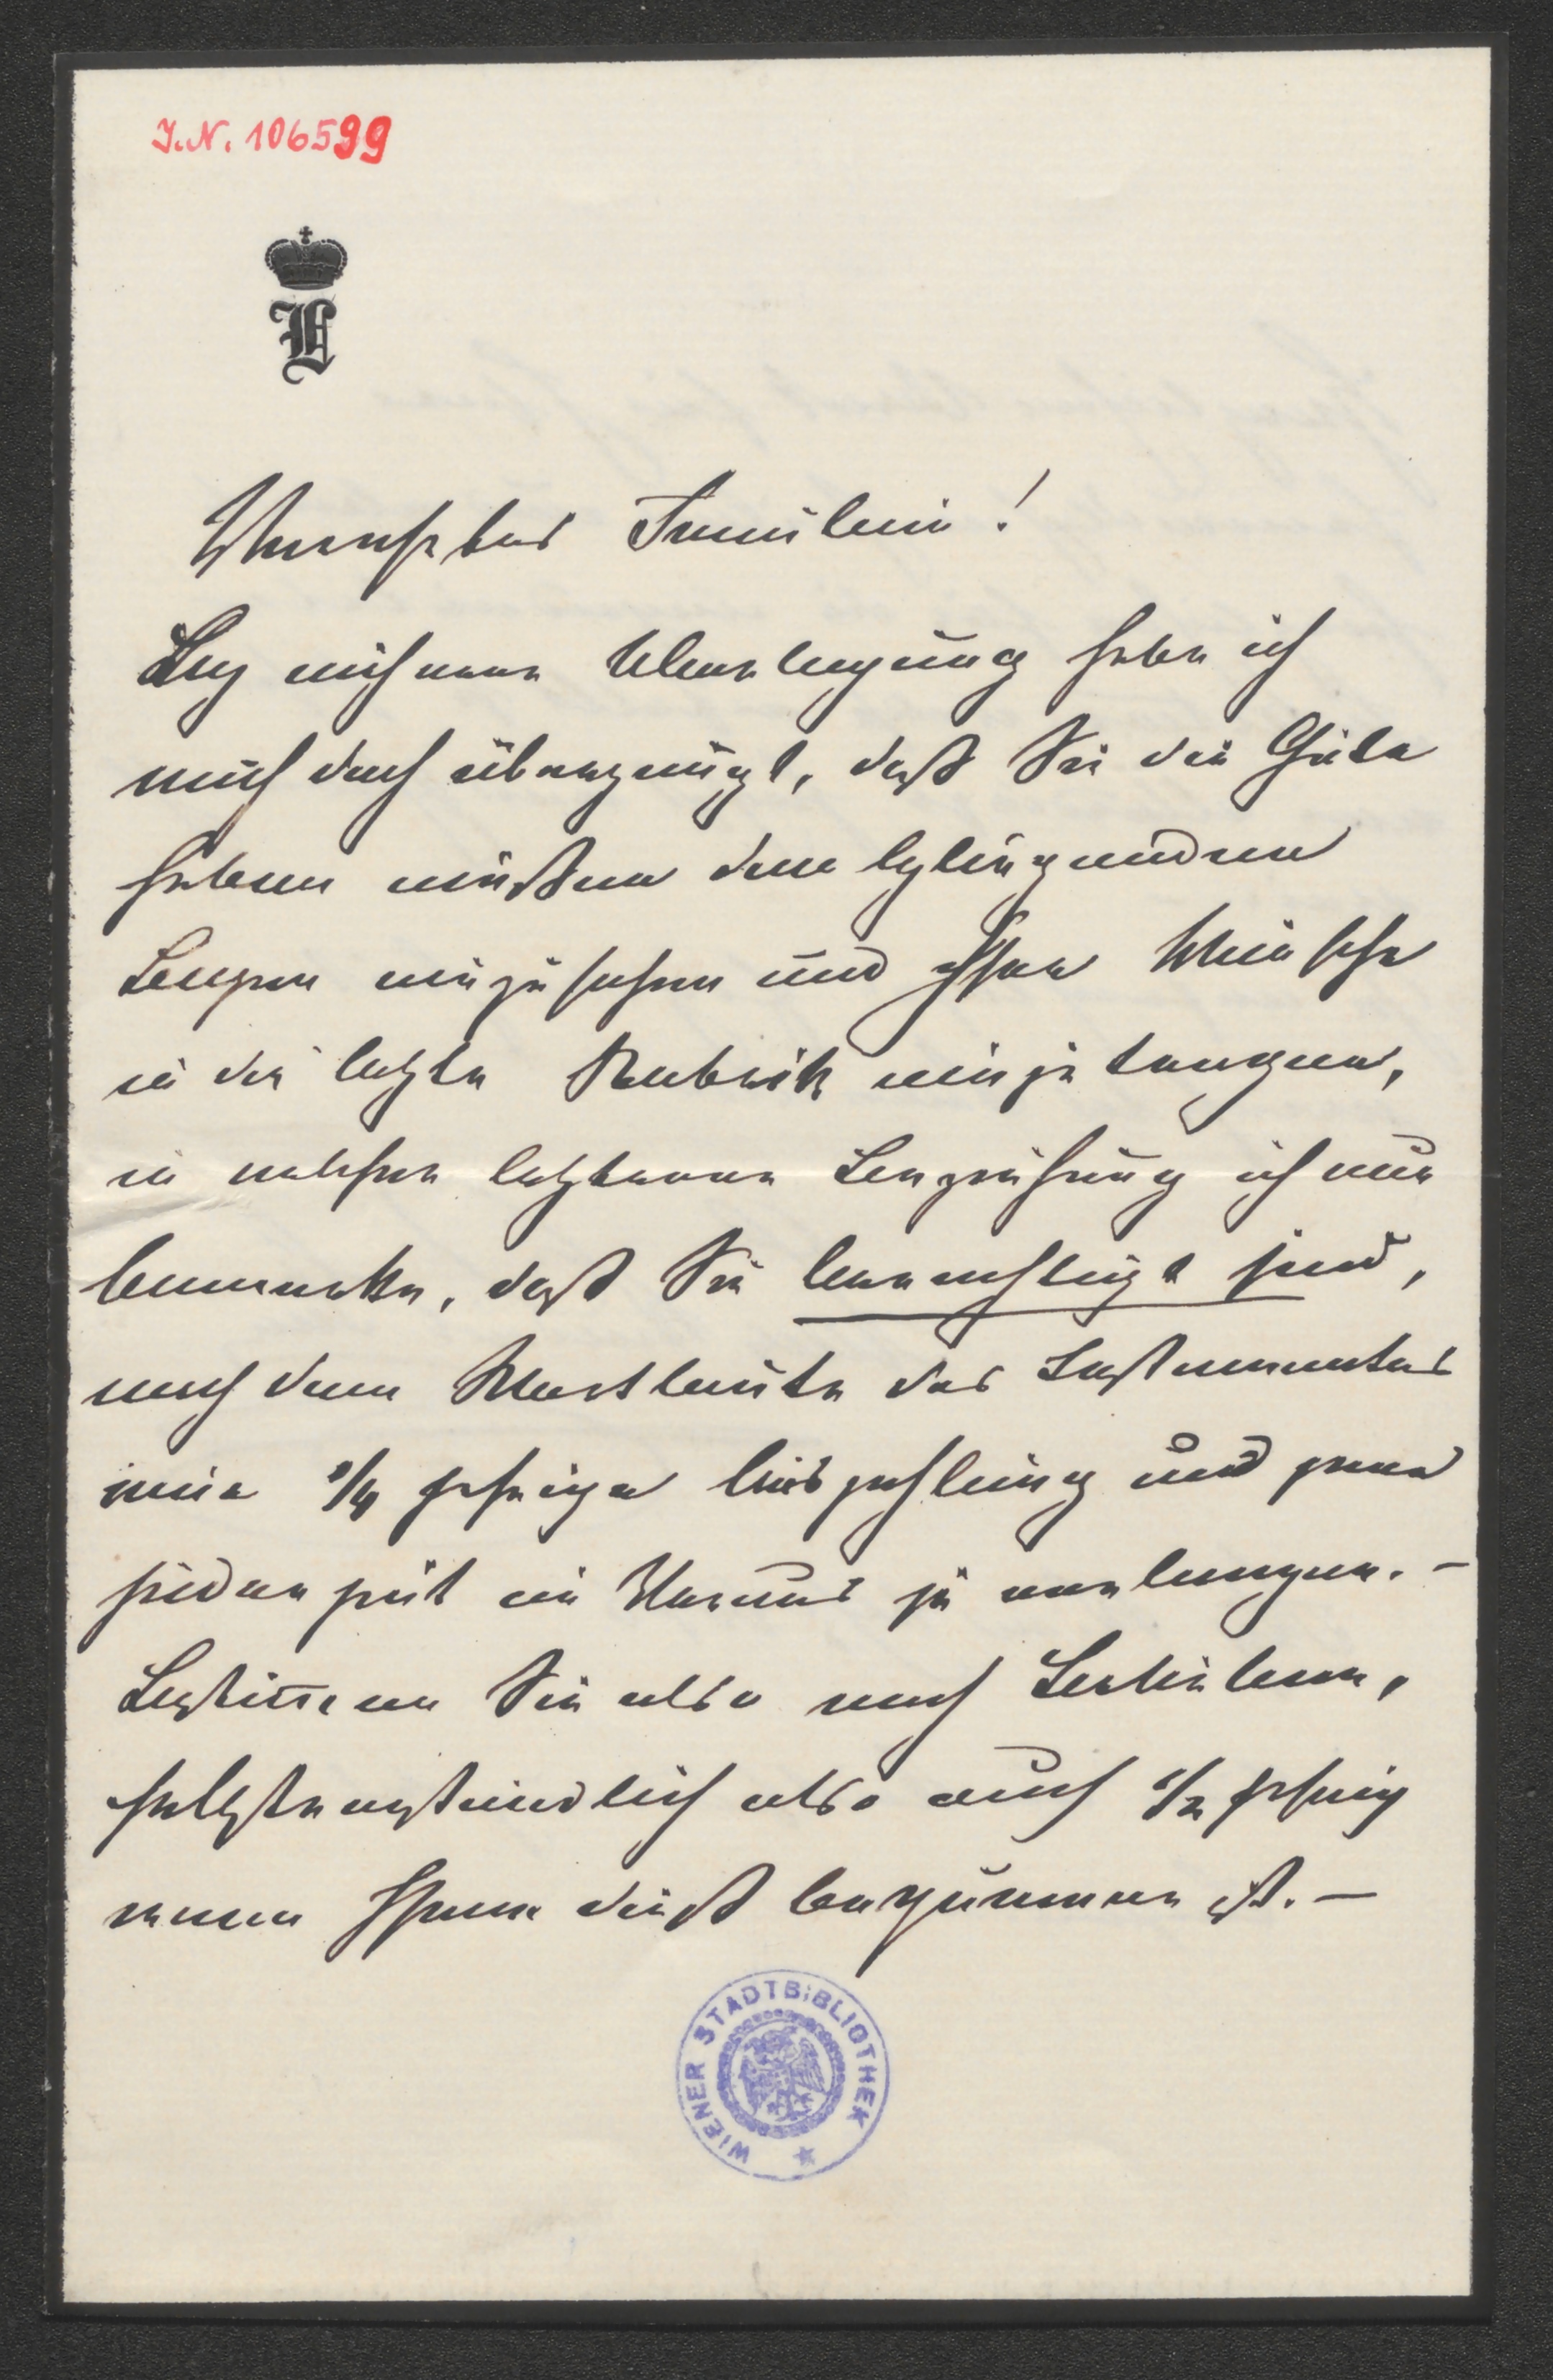 J.N. 106599
Verehrtes Fräulein!
Bey näherer Überlegung habe ich
mich doch überzeugt, daß Sie die Güte
haben müßen den beyliegenden
Bogen einzusehen und Ihre Wünsche
in die letzte Rubrik einzutragen,
in welcher letzterer Beziehung ich nur
bemerke, daß Sie berechtigt sind,
nach dem Wortlaute des Testamentes
eine 1/4 jährige Auszahlung und zwar
jederzeit im Voraus zu verlangen. –
Bestimmen Sie also nach Belieben,
selbstverständlich also auch 1/2 jährig
wenn Ihnen dieß bequemer ist. –
WIENER STADTBIBLIOTHEK